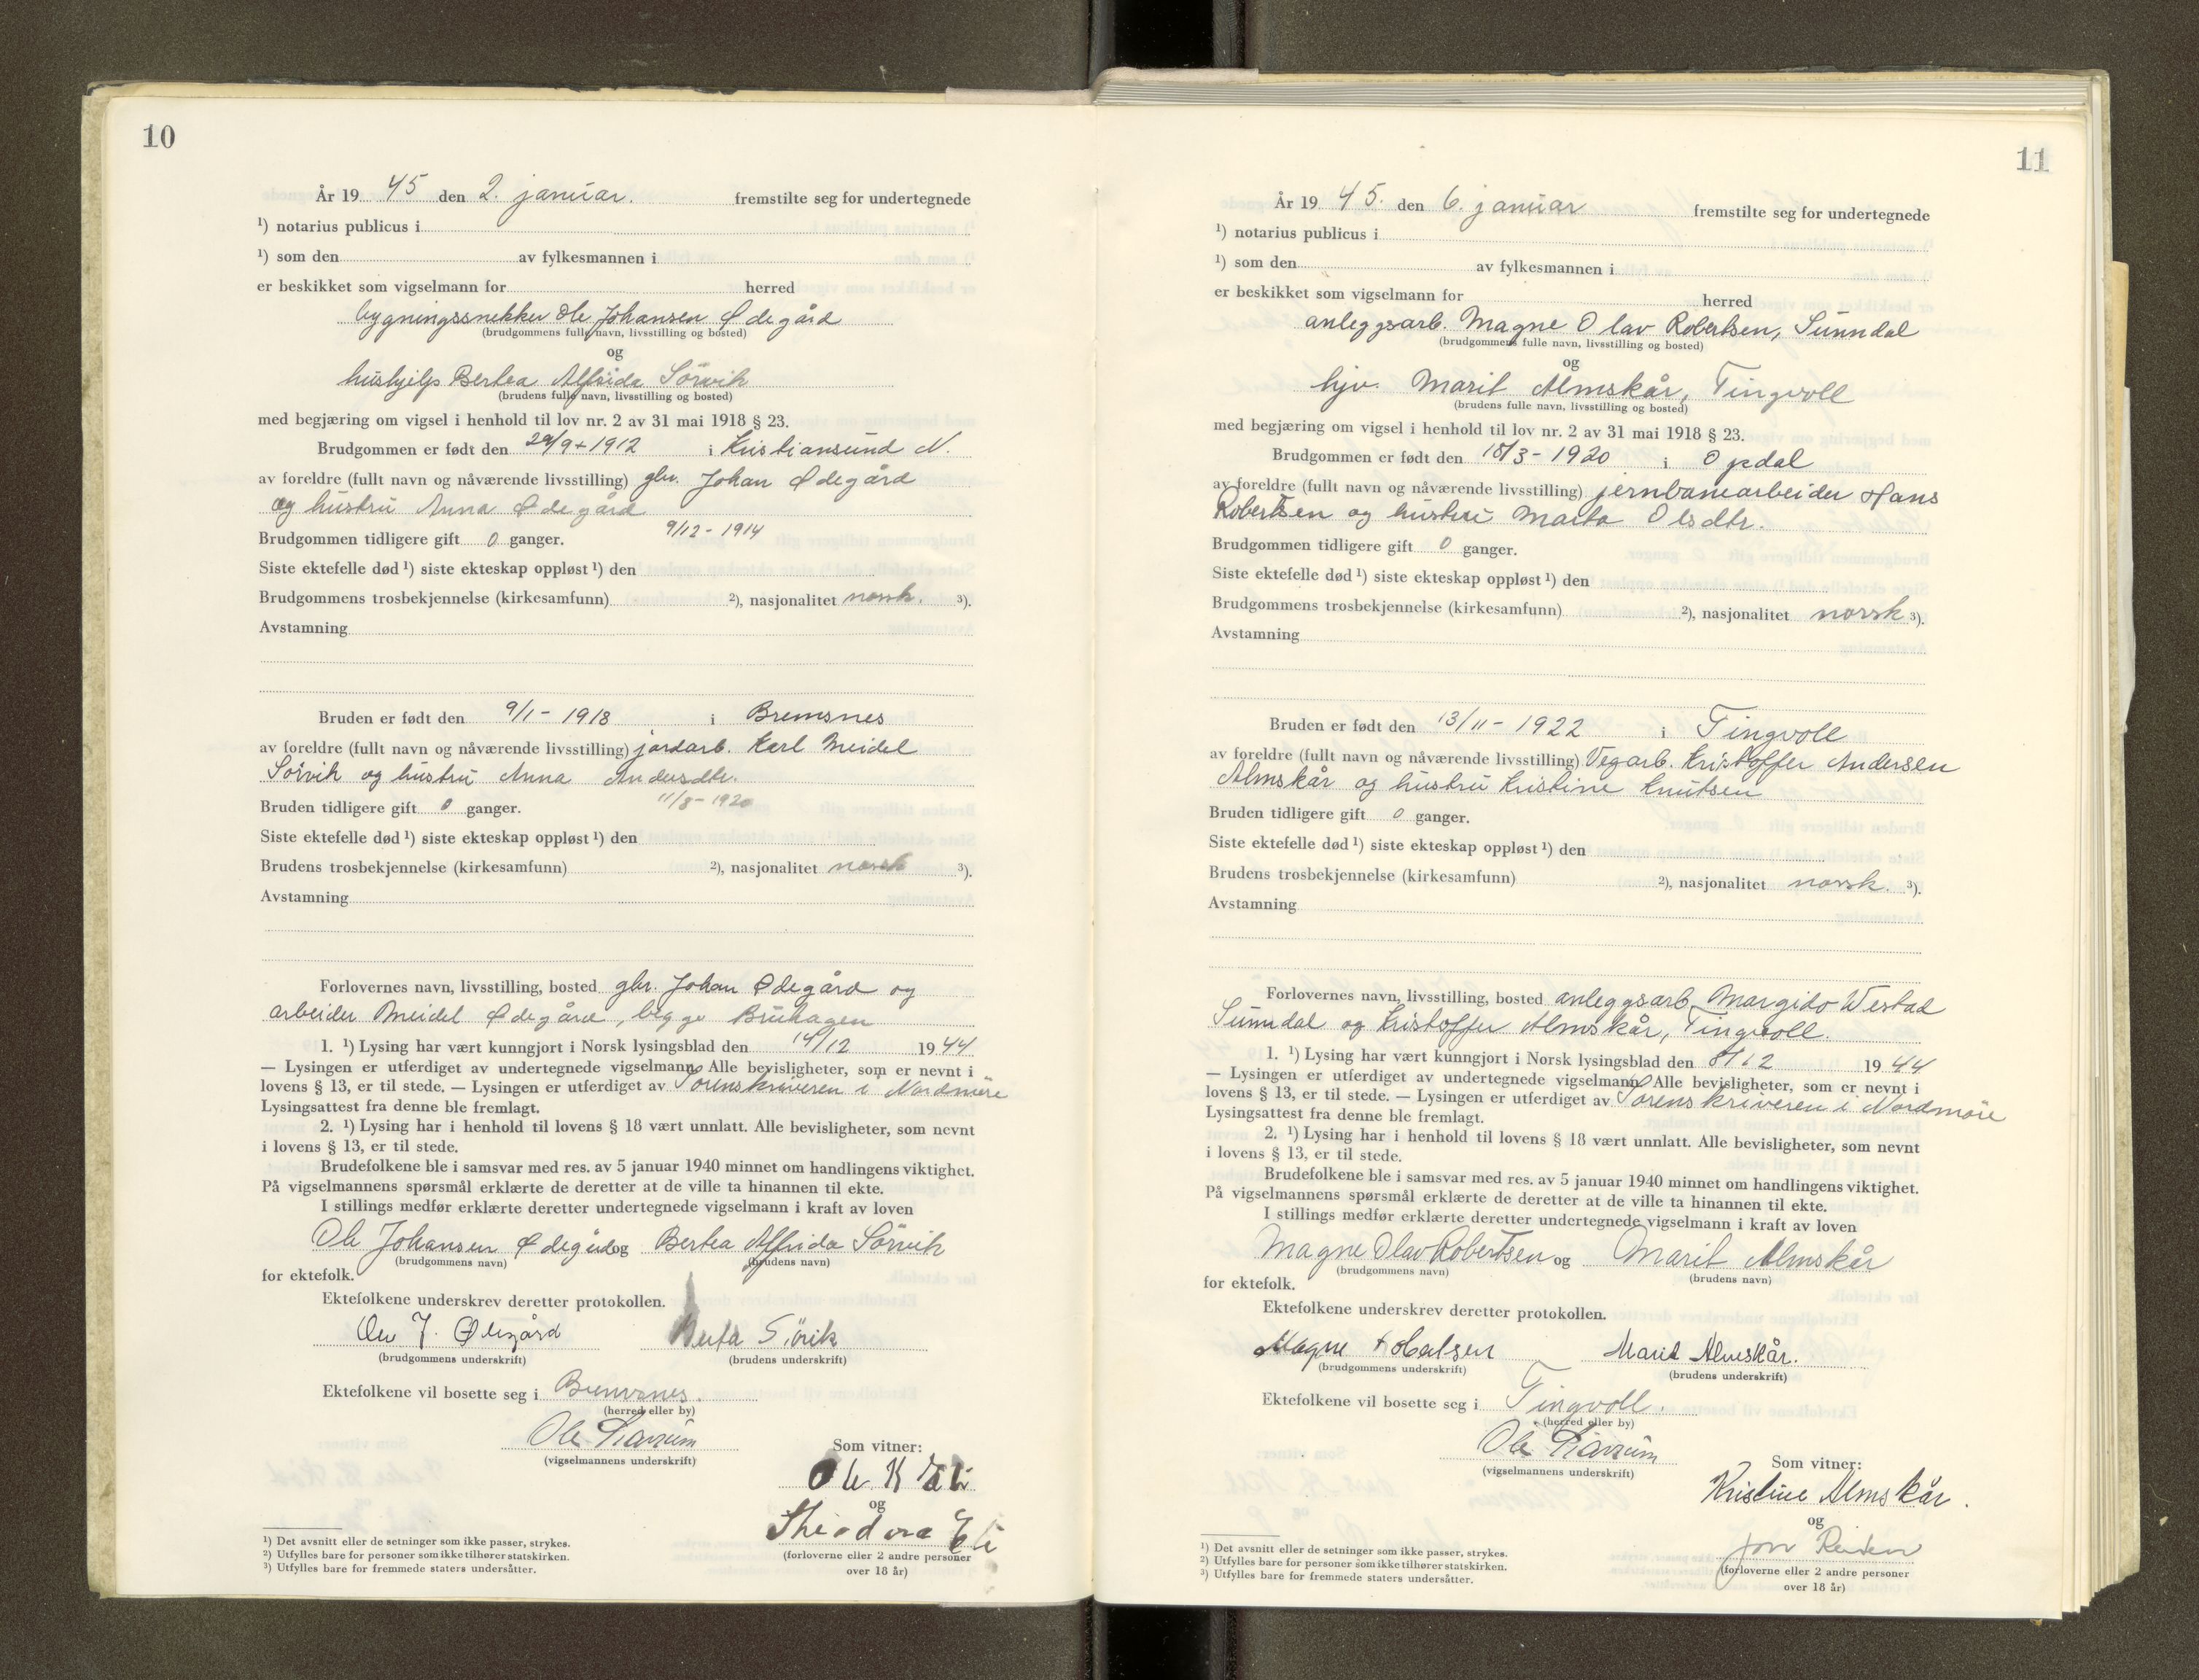 10
År 19 45 den 2. januar. fremstilte seg for undertegnede
¹) notarius publicus i
¹) som den av fylkesmannen i
er beskikket som vigselmann for herred
bygningssnekker Ole Johansen Ødegård
(brudgommens fulle navn, livsstilling og bosted)
og
hushjelp Bertea Alfrida Sörvik
(brudens fulle navn, livsstilling og bosted)
med begjæring om vigsel i henhold til lov nr. 2 av 31 mai 1918 § 23.
Brudgommen er født den 29/9 1912 i Kristiansund N.
av foreldre (fullt navn og nåværende livsstilling) gbr. Johan Ødegård
og hustru Anna Ødegård
Brudgommen tidligere gift 0 ganger. 9/12 - 1914
Siste ektefelle død ¹) siste ekteskap oppløst ¹) den
Brudgommens trosbekjennelse (kirkesamfunn) ²), nasjonalitet norsk. ³).
Avstamning
Bruden er født den 9/1 - 1918 i Bremsnes
av foreldre (fullt navn og nåværende livsstilling) jordarb. Karl Meidel
Sörvik og hustru Anna Andersdtr.
Bruden tidligere gift 0 ganger. 11/8 - 1920
Siste ektefelle død ¹) siste ekteskap oppløst ¹) den
Brudens trosbekjennelse (kirkesamfunn) ²), nasjonalitet norsk ³).
Avstamning
Forlovernes navn, livsstilling, bosted gbr. Johan Ødegård og
arbeider Meidel Ødegård, begge Bruhagen
1. ¹) Lysing har vært kunngjort i Norsk lysingsblad den 14/12 19 44
— Lysingen er utferdiget av undertegnede vigselmann. Alle bevisligheter, som er nevnt i
lovens § 13, er til stede. — Lysingen er utferdiget av Sorenskriveren i Nordmöre
Lysingsattest fra denne ble fremlagt.
2. ¹) Lysing har i henhold til lovens § 18 vært unnlatt. Alle bevisligheter, som nevnt
i lovens § 13, er til stede.
Brudefolkene ble i samsvar med res. av 5 januar 1940 minnet om handlingens viktighet.
På vigselmannens spørsmål erklærte de deretter at de ville ta hinannen til ekte.
I stillings medfør erklærte deretter undertegnede vigselmann i kraft av loven
Ole Johansen Ødegård og Bertea Alfrida Sörvik
(brudgommens navn) (brudens navn)
for ektefolk.
Ektefolkene underskrev deretter protokollen.
Ole J. Ødegård Berta Sörvik
(brudgommens underskrift) (brudens underskrift)
Ektefolkene vil bosette seg i Bremsnes.
(herred eller by)
Ole
(vigselmannens underskrift)
Som vitner:
Ole K
og
Theodora
(forloverne eller 2 andre personer
over 18 år)
¹) Det avsnitt eller de setninger som ikke passer, strykes.
²) Utfylles bare for personer som ikke tilhører statskirken.
³) Utfylles bare for fremmede staters undersåtter.
11
År 19 45. den 6. januar fremstilte seg for undertegnede
¹) notarius publicus i
¹) som den av fylkesmannen i
er beskikket som vigselmann for herred
anleggsarb. Magne Olav Robertsen, Sunndal
(brudgommens fulle navn, livsstilling og bosted)
og
hjv. Marit Almskår, Tingvoll
(brudens fulle navn, livsstilling og bosted)
med begjæring om vigsel i henhold til lov nr. 2 av 31 mai 1918 § 23.
Brudgommen er født den 18/3 - 1920 i Opdal
av foreldre (fullt navn og nåværende livsstilling) jernbanearbeider Hans
Robertsen og hustru Marta Olsdtr.
Brudgommen tidligere gift 0 ganger.
Siste ektefelle død ¹) siste ekteskap oppløst ¹) den
Brudgommens trosbekjennelse (kirkesamfunn) ²), nasjonalitet norsk ³).
Avstamning
Bruden er født den 13/11 - 1922 i Tingvoll
av foreldre (fullt navn og nåværende livsstilling) Vegarb. Kristoffer Andersen
Almskår og hustru Kristine Knutsen
Bruden tidligere gift 0 ganger.
Siste ektefelle død ¹) siste ekteskap oppløst ¹) den
Brudens trosbekjennelse (kirkesamfunn) ²), nasjonalitet norsk. ³).
Avstamning
Forlovernes navn, livsstilling, bosted anleggsarb. Margido Westad
Sunndal og Kristoffer Almskår, Tingvoll.
1. ¹) Lysing har vært kunngjort i Norsk lysingsblad den 8/12 19 44
— Lysingen er utferdiget av undertegnede vigselmann. Alle bevisligheter, som er nevnt i
lovens § 13, er til stede. — Lysingen er utferdiget av Sorenskriveren i Nordmöre
Lysingsattest fra denne ble fremlagt.
2. ¹) Lysing har i henhold til lovens § 18 vært unnlatt. Alle bevisligheter, som nevnt
i lovens § 13, er til stede.
Brudefolkene ble i samsvar med res. av 5 januar 1940 minnet om handlingens viktighet.
På vigselmannens spørsmål erklærte de deretter at de ville ta hinannen til ekte.
I stillings medfør erklærte deretter undertegnede vigselmann i kraft av loven
Magne Olav Robertsen og Marit Almskår
(brudgommens navn) (brudens navn)
for ektefolk.
Ektefolkene underskrev deretter protokollen.
Magne Robertsen Marit Almskår.
(brudgommens underskrift) (brudens underskrift)
Ektefolkene vil bosette seg i Tingvoll.
(herred eller by)
Ole
(vigselmannens underskrift)
Som vitner:
Kristine Almskår.
og
Jon
(forloverne eller 2 andre personer
over 18 år)
¹) Det avsnitt eller de setninger som ikke passer, strykes.
²) Utfylles bare for personer som ikke tilhører statskirken.
³) Utfylles bare for fremmede staters undersåtter.